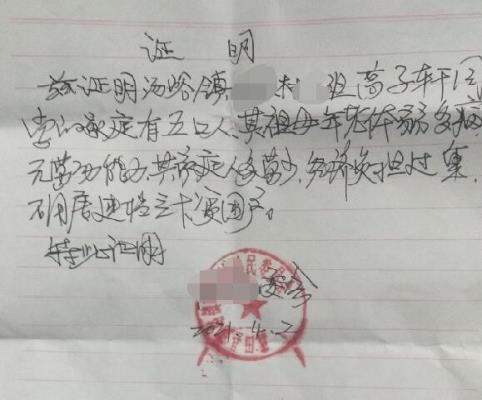 证 明
兹证明汤峪镇 村 班高子轩同
学的家庭有五口人,其祖母年老体弱多病
无劳动能力,其家庭人多劳少,经济负担过重,
不属建档立卡贫困户。
特此证明
委会
2021.4.2